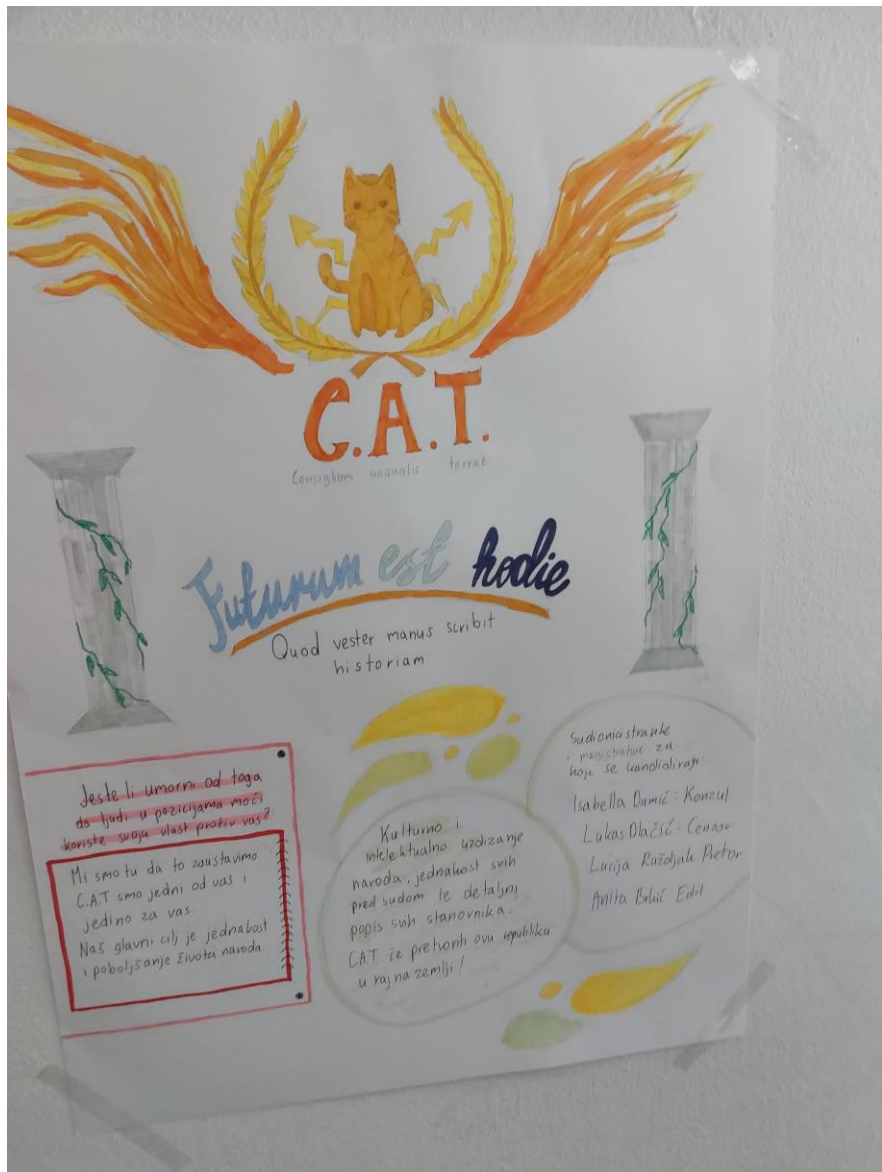 C.A.T.
Consiglium aequalis terrae
Futurum est hodie
Quod vester manus scribit
historiam
Jeste li umorni od toga
da ljudi u pozicijama moći
koriste svoju vlast protiv vas?
Mi smo tu da to zaustavimo
C.A.T smo jedni od vas i
jedino za vas.
Naš glavni cilj je jednakost
i poboljšanje života naroda
Kulturno i
intelektualno uzdizanje
naroda, jednakost svih
pred sudom te detaljni
popis svih stanovnika.
C.A.T. će pretvoriti ovu republiku
u raj na zemlji!
Sudionici stranke
i magistrature za
koje se kandidiraju:
Isabella Dumić: Konzul
Lukas Dlažić: Cenzor
Lucija Raždjak Pretor
Anita Edil